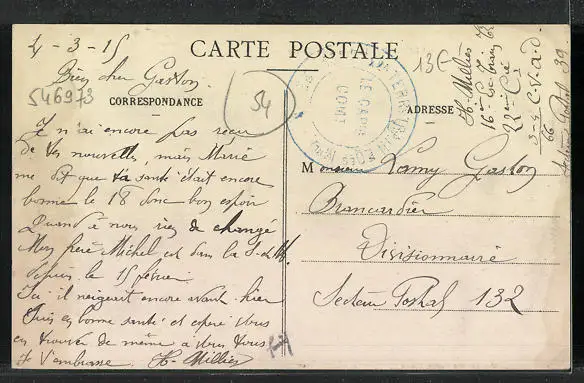 4-3-15
CARTE POSTALE
13€
Bien cher Gaston.
546973
54
CORRESPONDANCE
ADRESSE
Je n'ai encore pas reçu
de tes nouvelles, mais Marie
me dit que ta santé était encore
bonne le 18 donc bon espoir
Quand à nous rien de changé
Mon frère Michel est dans la
depuis le 15 février.
Ici il neigeait encore avant-hier
Suis en bonne santé et espère vous
en trouver de même à vous tous
Je t'embrasse. H. Millier
Monsieur Gaston
Brancardier
Divisionnaire
Secteur Postal 132
H. Millier
16e
22e Cie
3-4 C.V.a.d.
66
Secteur Postal 39